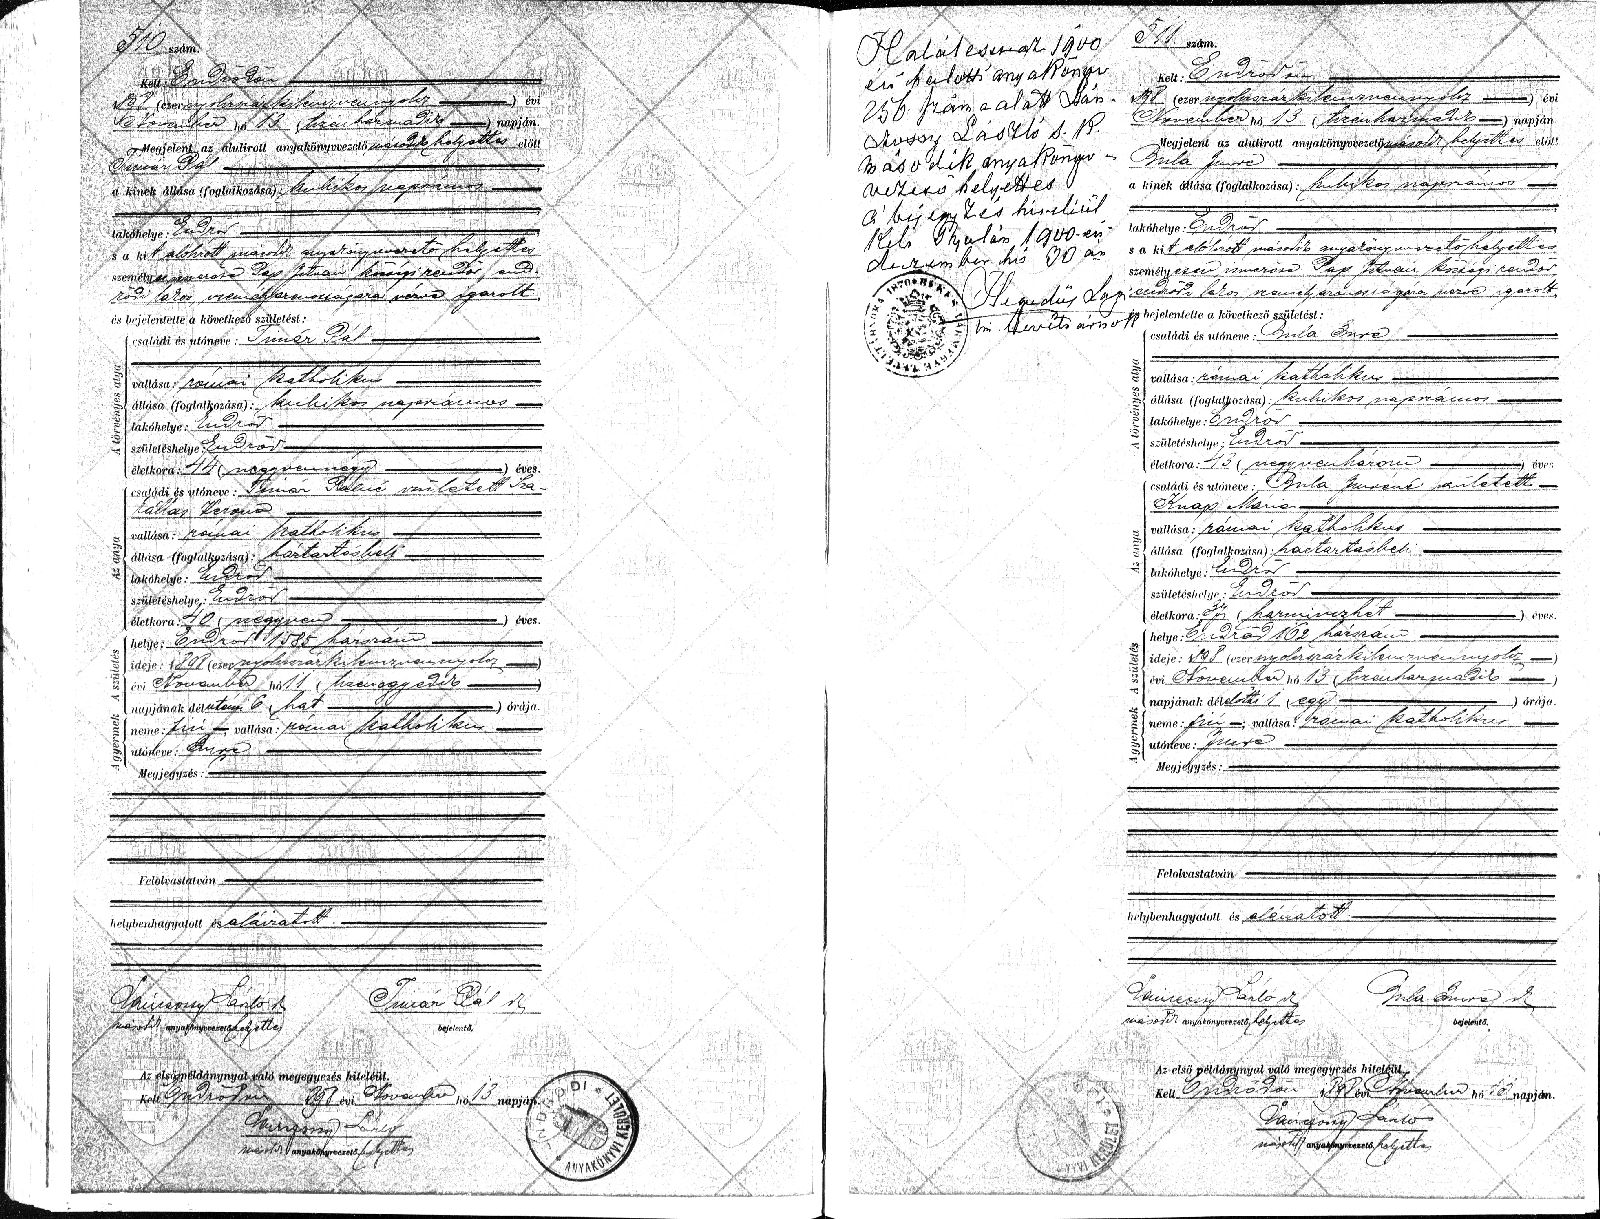 510 szám.
Kelt: Endrődön
1898 (ezer nyolcszázkilenczvennyolcz) évi
November hó 13 (tizenharmadik) napján.
Megjelent az alulirott anyakönyvezető második helyettes előtt
Timár Pál
a kinek állása (foglalkozása): kubikos napszámos
lakóhelye: Endrőd
s a kit alulirott második anyakönyvvezető helyettes
személyesen Pap István községi rendőr, end-
rődi lakos igazolt,
és bejelentette a következő születést:
A törvényes atya
családi és utóneve: Timár Pál
vallása: római katholikus
állása (foglalkozása): kubikos napszámos
lakóhelye: Endrőd
születéshelye: Endrőd
életkora: 44 (negyvennégy) éves.
Az anya
családi és utóneve: Timár Pálné született Sza-
kállas Verona
vallása: római katholikus
állása (foglalkozása): háztartásbeli
lakóhelye: Endrőd
születéshelye: Endrőd
életkora: 40 (negyven) éves.
A születés
helye: Endrőd 1585 házszám
ideje: 1898 (ezer nyolcszázkilenczvennyolcz)
évi November hó 11 (tizenegyedik)
napjának délutáni 6 (hat) órája.
A gyermek
neme: fiú vallása: római katholikus
utóneve: Imre
Megjegyzés:
Felolvastatván
helybenhagyatott és aláiratott.
László
Timár Pál
második anyakönyvezető helyettes
bejelentő.
Az első példánynyal való megegyezés hiteléül.
Kelt Endrődön 898 évi November hó 13 napján.
László
második anyakönyvezető helyettes
ENDRŐDI
ANYAKÖNYVI KERÜLET
Halálesemaz 1900
évi halotti anyakönyv
256 szám a alatt
László s. k.
második anyakönyv-
vezető helyettes
A bejegyzés hiteléül
Kelt Gyulán 1900 évi
deczember hó 30 án
Hegedűs
511 szám.
Kelt: Endrődön
1898 (ezer nyolcszázkilenczvennyolcz) évi
November hó 13 (tizenharmadik) napján
Megjelent az alulirott anyakönyvezető második helyettes előtt
Bula Imre
a kinek állása (foglalkozása): kubikos napszámos
lakóhelye: Endrőd
s a kit alulirott második anyakönyvvezető helyettes
személyesen Pap István községi rendőr
endrődi lakos igazolt,
és bejelentette a következő születést:
A törvényes atya
családi és utóneve: Bula Imre
vallása: római katholikus
állása (foglalkozása): kubikos napszámos
lakóhelye: Endrőd
születéshelye: Endrőd
életkora: 43 (negyvenhárom) éves.
Az anya
családi és utóneve: Bula Imréné született
Knap Mária
vallása: római katholikus
állása (foglalkozása): háztartásbeli
lakóhelye: Endrőd
születéshelye: Endrőd
életkora: 37 (harminczhét) éves.
A születés
helye: Endrőd 162 házszám
ideje: 1898 (ezer nyolcszázkilenczvennyolcz)
évi November hó 13 (tizenharmadik)
napjának délelőtti 1 (egy) órája.
A gyermek
neme: fiú; vallása: római katholikus
utóneve: Imre
Megjegyzés:
Felolvastatván
helybenhagyatott és aláiratott.
László
Bula Imre
második anyakönyvezető helyettes
bejelentő.
Az első példánynyal való megegyezés hiteléül.
Kelt Endrődön 898 évi November hó 13 napján.
László
második anyakönyvezető helyettes